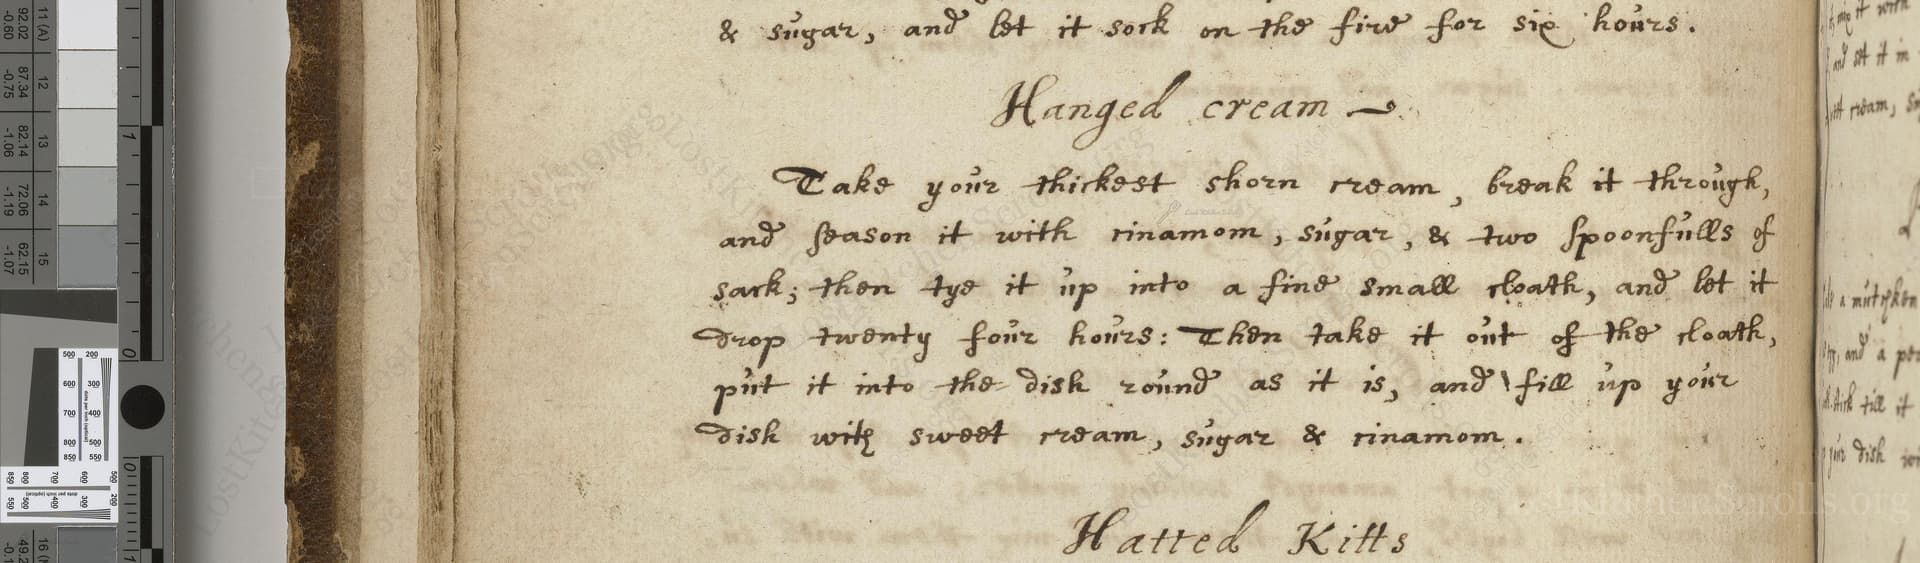 & sugar, and let it sock on the fire for six hours.
Hanged cream
Take your thickest shorn cream, break it through,
and season it with cinamom, sugar, & two spoonfulls of
sack; then tye it up into a fine small cloath, and let it
drop twenty four hours: Then take it out of the cloath,
put it into the dish round as it is, and fill up your
dish with sweet cream, sugar & cinamom.
Hatted Kitts
it with
and set it in
cream,
and a
till it
your dish
11 (A) 12 13 14 15
92.02 87.34 82.14 72.06 62.15
-0.60 -0.75 -1.06 -1.19 -1.07
LostKitchenScrolls.org